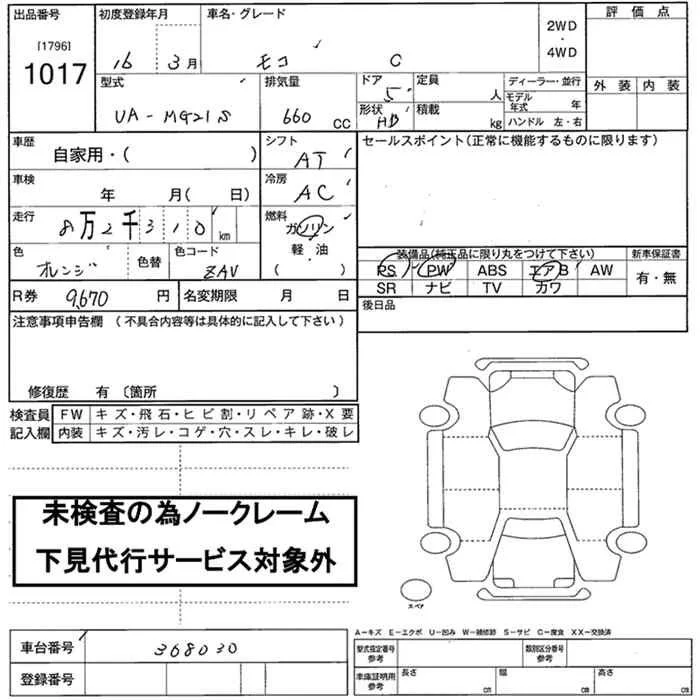 出品番号 初度登録年月 車名・グレード 2WD ・ 4WD 評価点
[1796]
1017
16 3月 モコ C
外装 内装
型式 排気量 ドア 定員 ディーラー・並行
UA-MG21S 660 CC 5 人 モデル年式 年
形状 HB 積載 kg ハンドル 左・右
車歴 自家用・( ) シフト AT セールスポイント(正常に機能するものに限ります)
車検 年 月( 日) 冷房 AC
走行 8万2千310km 燃料 ガソリン 軽油 ( ・ )
色 オレンジ 色替 色コード ZAV
装備品(純正品に限り丸をつけて下さい) 新車保証書
PS PW ABS エアB AW 有・無
SR ナビ TV カワ
R券 9,670円 名変期限 月 日 後日品
注意事項申告欄 (不具合内容等は具体的に記入して下さい)
修復歴 有 〔箇所 〕
検査員 FW キズ・飛石・ヒビ割・リペア跡・X要
記入欄 内装 キズ・汚レ・コゲ・穴・スレ・キレ・破レ
未検査の為ノークレーム
下見代行サービス対象外
スペア
A-キズ E-エクボ U-凹み W-補修跡 S-サビ C-腐食 XX-交換済
車台番号 368030
登録番号
型式指定番号 参考 類別区分番号 参考
車庫証明用 参考 長さ cm 幅 cm 高さ cm